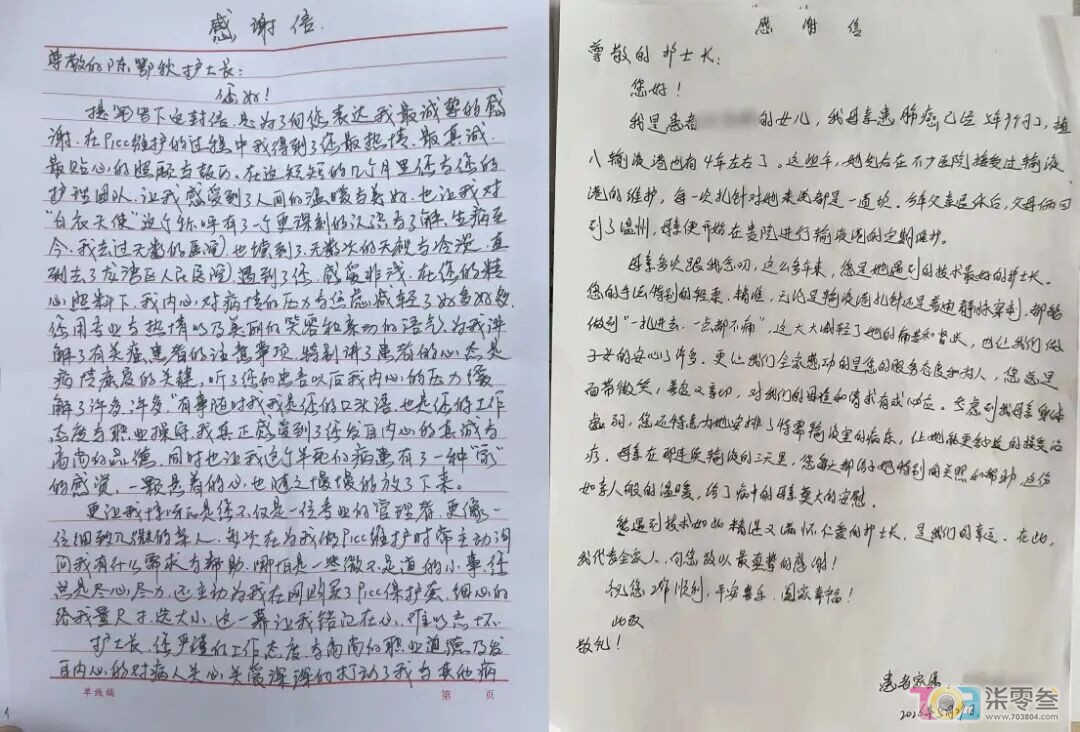 感谢信.
尊敬的陈鄂秋护士长:
您好!
提笔写下这封信,是为了向您表达我最诚挚的感
谢.在Picc维护的过程中我得到了您最热情、最真诚、
最贴心的照顾与鼓励.在这短短的几个月里您与您的
护理团队,让我感受到了人间的温暖与美好.也让我对
"白衣天使"这个称呼有了一个更深刻的认识与了解.生病至
今.我去过无数的医院,也遭到了无数次的天报与冷漠.直
到去了龙湾区人民医院,遇到了您.感受非浅.在您的精
心照料下.我内心对病情的压力与焦虑减轻了好多好多.
您用专业与热情以及美丽的笑容和亲切的语气,为我讲
解了有关癌患者的注意事项.特别讲了患者的心态是
病情康复的关键,听了您的忠告以后我内心的压力缓
解了许多,许多."有事随时找我是您的口头语.也是您的工作
态度与职业操守.我真正感受到了您发自内心的真诚与
高尚的品德,同时也让我这个年死的病患有了一种"家"
的感觉,一颗悬着的心,也随之慢慢的放了下来.
更让我佩服的是您不仅是一位专业的管理者,更像一
位细致入微的亲人.每次在为我做Picc维护时常主动询
问我有什么要求与帮助.哪怕是一些微不足道的小事,您
总是尽心尽力.还主动为我在网购买了Picc保护套.细心的
给我量尺寸,选大小.这一幕让我铭记在心,难以忘怀.
护士长,您严谨的工作态度,与高尚的职业道德,及发
自内心的对病人关心,关爱深深的打动了我与其他病
单线稿 第 页
感谢信
尊敬的护士长:
您好!
我是患者 的女儿,我母亲患肺癌已经5年9个月,植
入输液港也有4年左右了。这些年,她先后在不少医院接受过输液
港的维护,每一次扎针对她来说都是一道坎。今年父亲退休后,父母俩回
到了温州,母亲便开始在贵院进行输液港的定期维护。
母亲多次跟我念叨,这么多年来,您是她遇到的技术最好的护士长。
您的手法特别的轻柔、精准,无论是输液港扎针还是普通静脉穿刺,都能
做到"一扎进去,一点都不痛",这大大减轻了她的痛苦和紧张,也让我们做
子女的安心了许多。更让我们全家感动的是您的服务态度和为人,您总是
面带微笑,善良又亲切,对我们的困难和请求有求必应。考虑到我母亲身体
虚弱,您还特意为她安排了特需输液室的病床,让她能更舒适的接受治
疗。母亲在那连续输液的三天里,您每天都给予她特别的关照和帮助,这份
如亲人般的温暖,给了病中的母亲莫大的安慰。
能遇到技术如此精湛又满怀仁爱的护士长,是我们的幸运。在此,
我代表全家人,向您致以最真挚的感谢!
祝您工作顺利,平安喜乐,阖家幸福!
此致
敬礼!
患者家属
703 柒零叁
www.703804.com